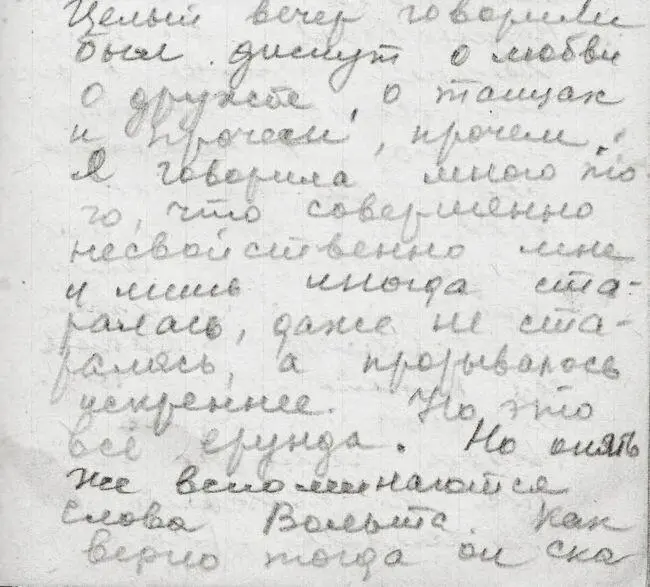 Целый вечер говорили
был диспут о любви
о дружбе, о танцах
и прочем, прочем.
Я говорила много то-
го, что совершенно
несвойственно мне
и лишь иногда ста-
ралась, даже не ста-
ралась, а прорывалось
искреннее. Но это
всё ерунда. Но опять
же вспоминаются
слова Вольтс. Как
верно тогда он ска